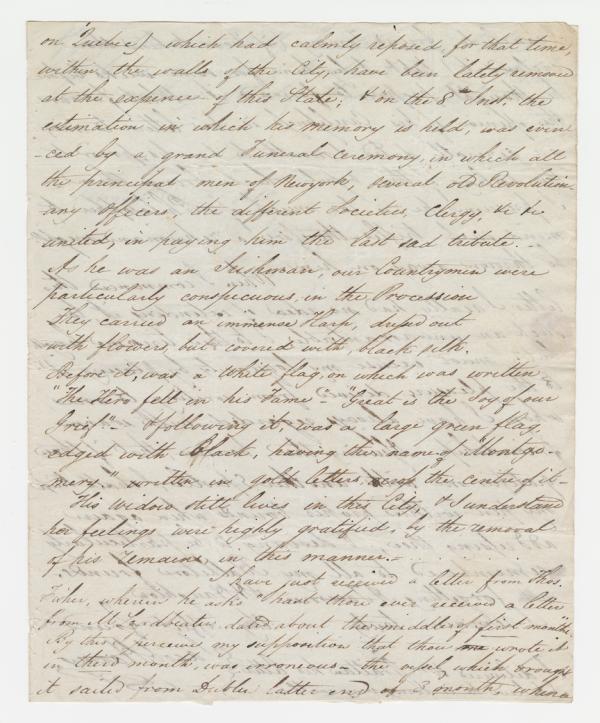 on Quebec) which had calmly reposed for that time,
within the walls of the City, have been lately removed
at the expence of this State; & on the 8th Inst. the
estimation in which his memory is held, was evin
-ced by a grand Funeral ceremony, in which all
the principal men of Newyork, several old Revolution-
ary officers, the different Societies, Clergy, &c &c
united, in paying him the last sad tribute. -
As he was an Irishman, our Countrymen were
particularly conspicuous, in the Procession
They carried an immense Harp, dress'd out
with flowers, but covered with, black silk.
Before it, was a White flag, on which was written
"The Hero fell in his Fame" - "Great is the Joy of our
Grief" - & following it, was a large green flag,
edged with Black, having the name of "Montgo-
mery" written in gold letters, the centre of it -
His Widow still lives in this City, & I understand
her feelings were highly gratified, by the removal
of his remains in this manner. -
I have just received a letter from Thos.
Fisher, wherein he asks "hast thou ever received a letter
from dated about the middle of first month".
By this I receive my supposition that thou wrote it
in third month, was erroneous - the vessel which brought
it sailed from Dublin latter end of 3 month,